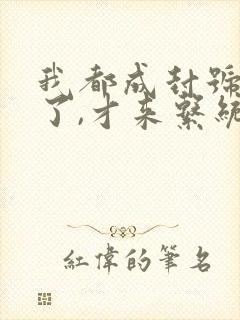 我都成封號
了,才来繫統
紅偉的筆名